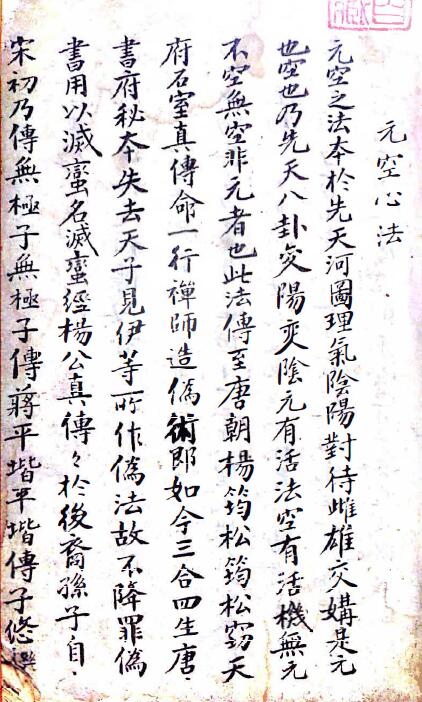 元空心法
元空之法本於先天河圖理氣陰陽對待雌雄交媾是元
也空也乃先天八卦爻陽爻陰元有活法空有活機無元
不空無空非元者也此法傳至唐朝楊筠松筠松竊天
府石室真傳命一行禪師造偽術即如今三合四生唐
書府秘本失去天子見伊等所作偽法故不降罪偽
書用以滅蠻名滅蠻經楊公真傳々於後裔孫子自
宋初乃傳無極子無極子傳蔣平堦平堦傳子悠